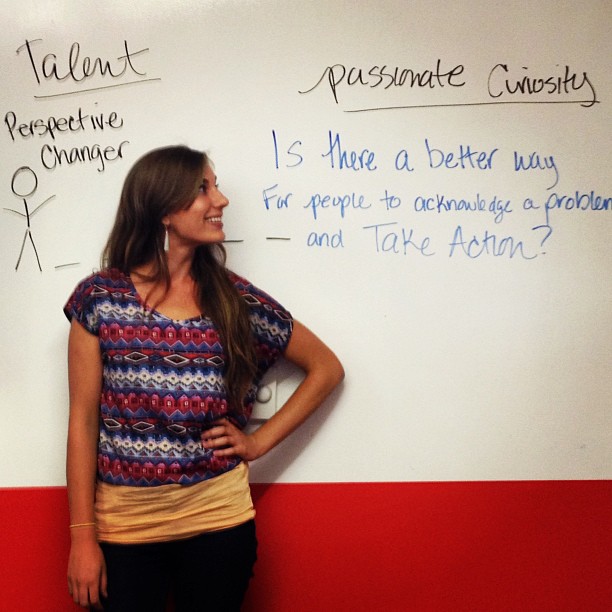 Talent
Perspective
Changer
passionate Curiosity
Is there a better way
For people to acknowledge a problem
and Take Action?